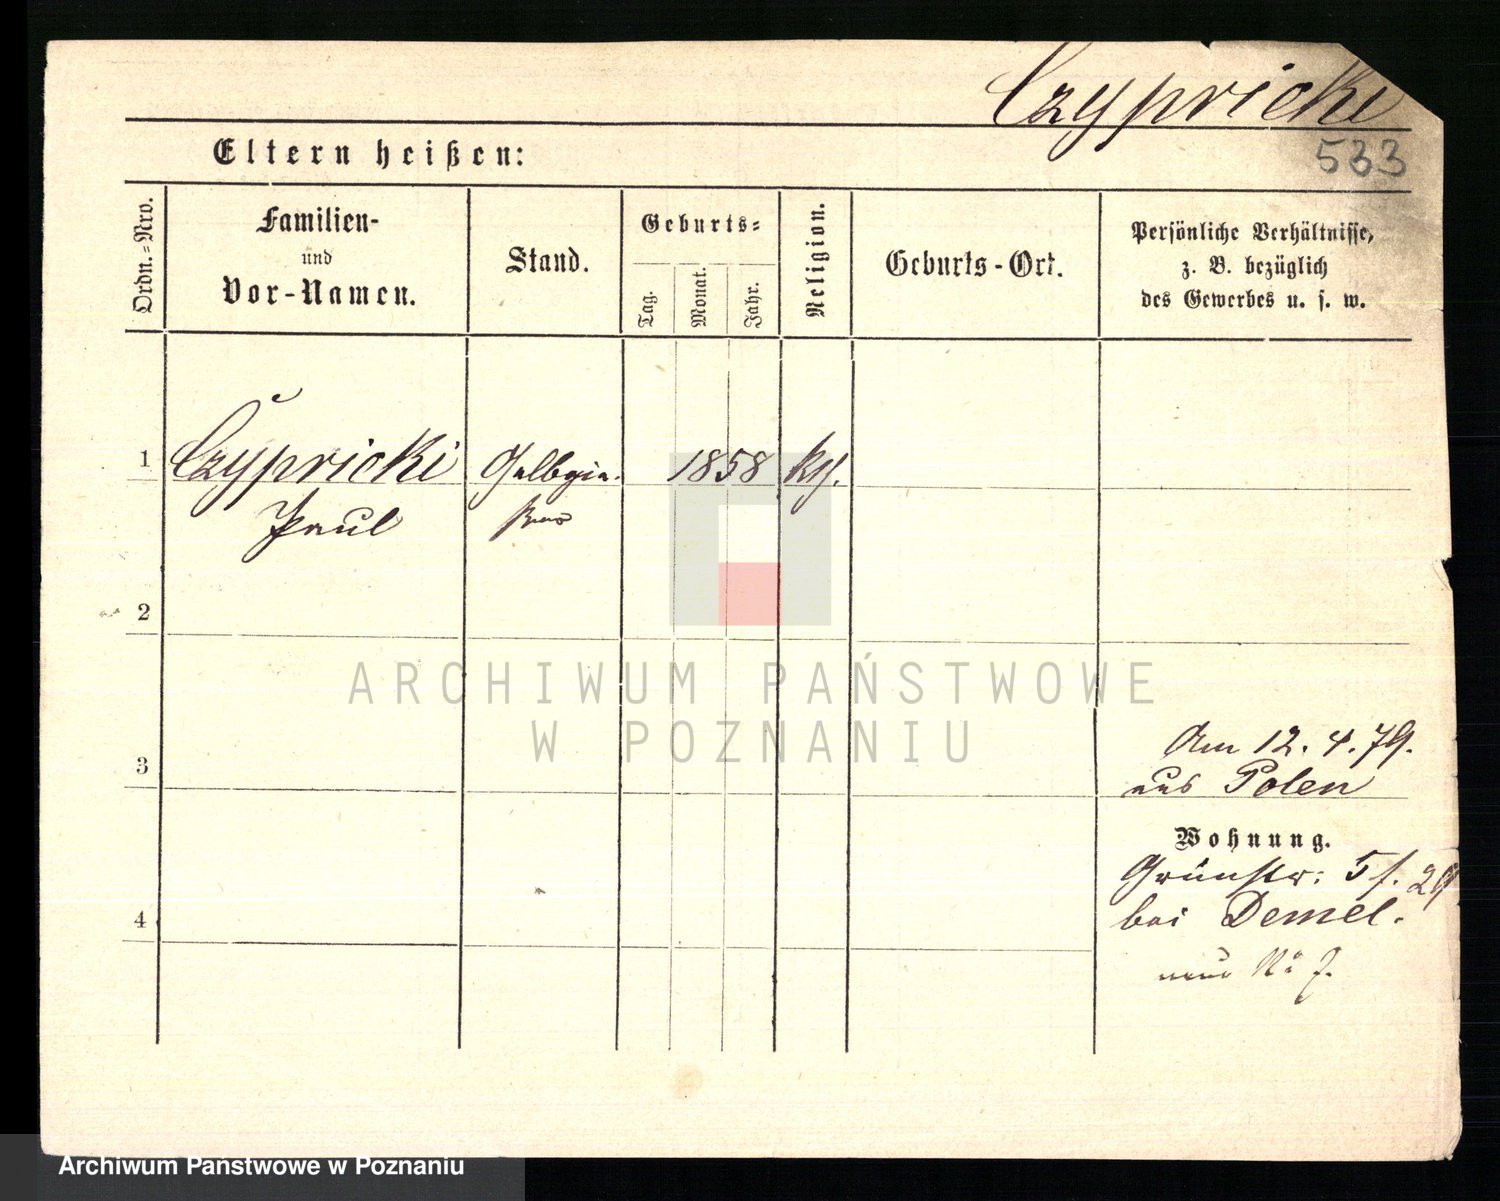 Czypricki
533
Eltern heißen:
Ordn.=Nro.
Familien-
und
Vor-Namen.
Stand.
Geburts=
Tag.
Monat.
Jahr.
Religion.
Geburts-Ort.
Persönliche Verhältnisse,
z. B. bezüglich
des Gewerbes u. s. w.
1
Czypricki
Paul
Gelbgie-
1858
kth.
2
ARCHIWUM PAŃSTWOWE
W POZNANIU
3
Am 12.4.79.
aus Polen
Wohnung.
Grünstr: 5
bei Demel.
4
Archiwum Państwowe w Poznaniu